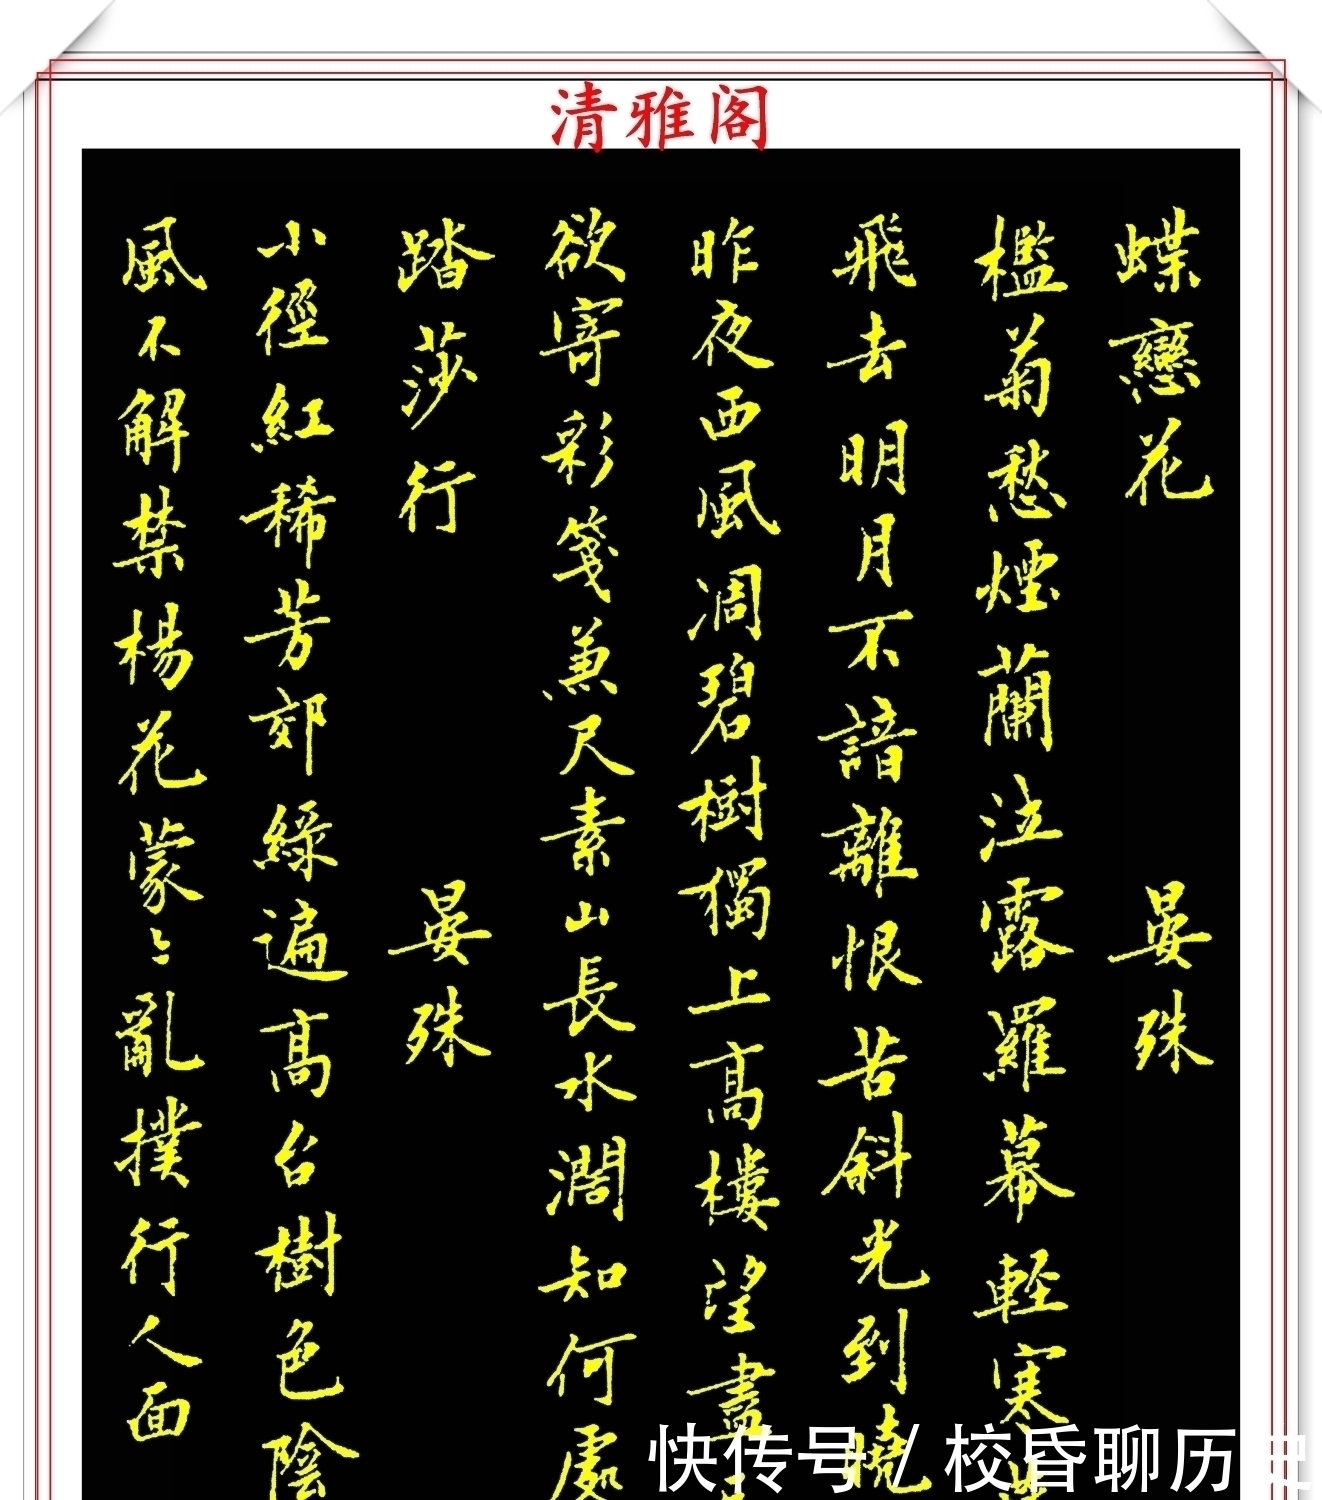 清雅阁
蝶戀花 晏殊
檻菊愁煙蘭泣露羅幕輕寒
飛去明月不諳離恨苦斜光到曉
昨夜西風凋碧樹獨上高樓望盡
欲寄彩箋兼尺素山長水濶知何處
踏莎行 晏殊
小徑紅稀芳郊綠遍高台樹色陰
風不解禁楊花蒙〻亂撲行人面
快传号/校昏聊历史